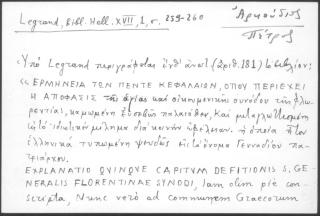 Legrand, Bibl. Hell. XVII, 1, σ. 259-260
Ἀρκούδιος
Πέτρος
Ὑπὸ Legrand περιγράφεται ἐνθ' ἀνωτ. (ἀριθ. 181) τὸ βιβλίον:
«ΕΡΜΗΝΕΙΑ ΤΩΝ ΠΕΝΤΕ ΚΕΦΑΛΑΙΩΝ, ΟΠΟΥ ΠΕΡΙΕΧΕΙ
Η ΑΠΟΦΑΣΙΣ τῆς ἁγίας καὶ οἰκουμενικῆς συνόδου τῆς Φλω-
ρεντίας, καμωμένη εὐσεβῶς παλαιόθεν, καὶ μεταγλωττισμένη
εἰς τὸ ἰδιωτικὸν μίλημα διὰ κοινὴν ὠφέλειαν. ἡ ὁποία ἦτον
ἑλληνικὰ τυπωμένη ψευδῶς εἰς τὸ ὄνομα Γενναδίου πα-
τριάρχου.
EXPLANATIO QUINQUE CAPITUM DEFITIONIS S. GE
NERALIS FLORENTINAE SYNODI, Iam olim piè con-
scripta, Nunc verò ad communem Graecorum